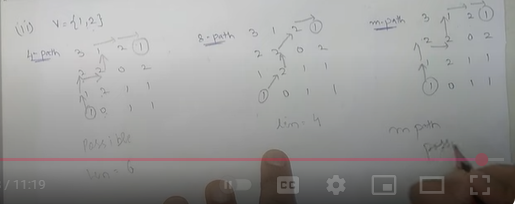 (ii) V = {1,2}
4-path 3 1 2 1
2 2 0 2
1 2 1 1
1 0 1 1
possible
8-path 3 1 2 1
2 2 0 2
1 2 1 1
1 0 1 1
len = 4
m-path 3 1 2 1
2 2 0 2
1 2 1 1
1 0 1 1
m path
/ 11:19
CC